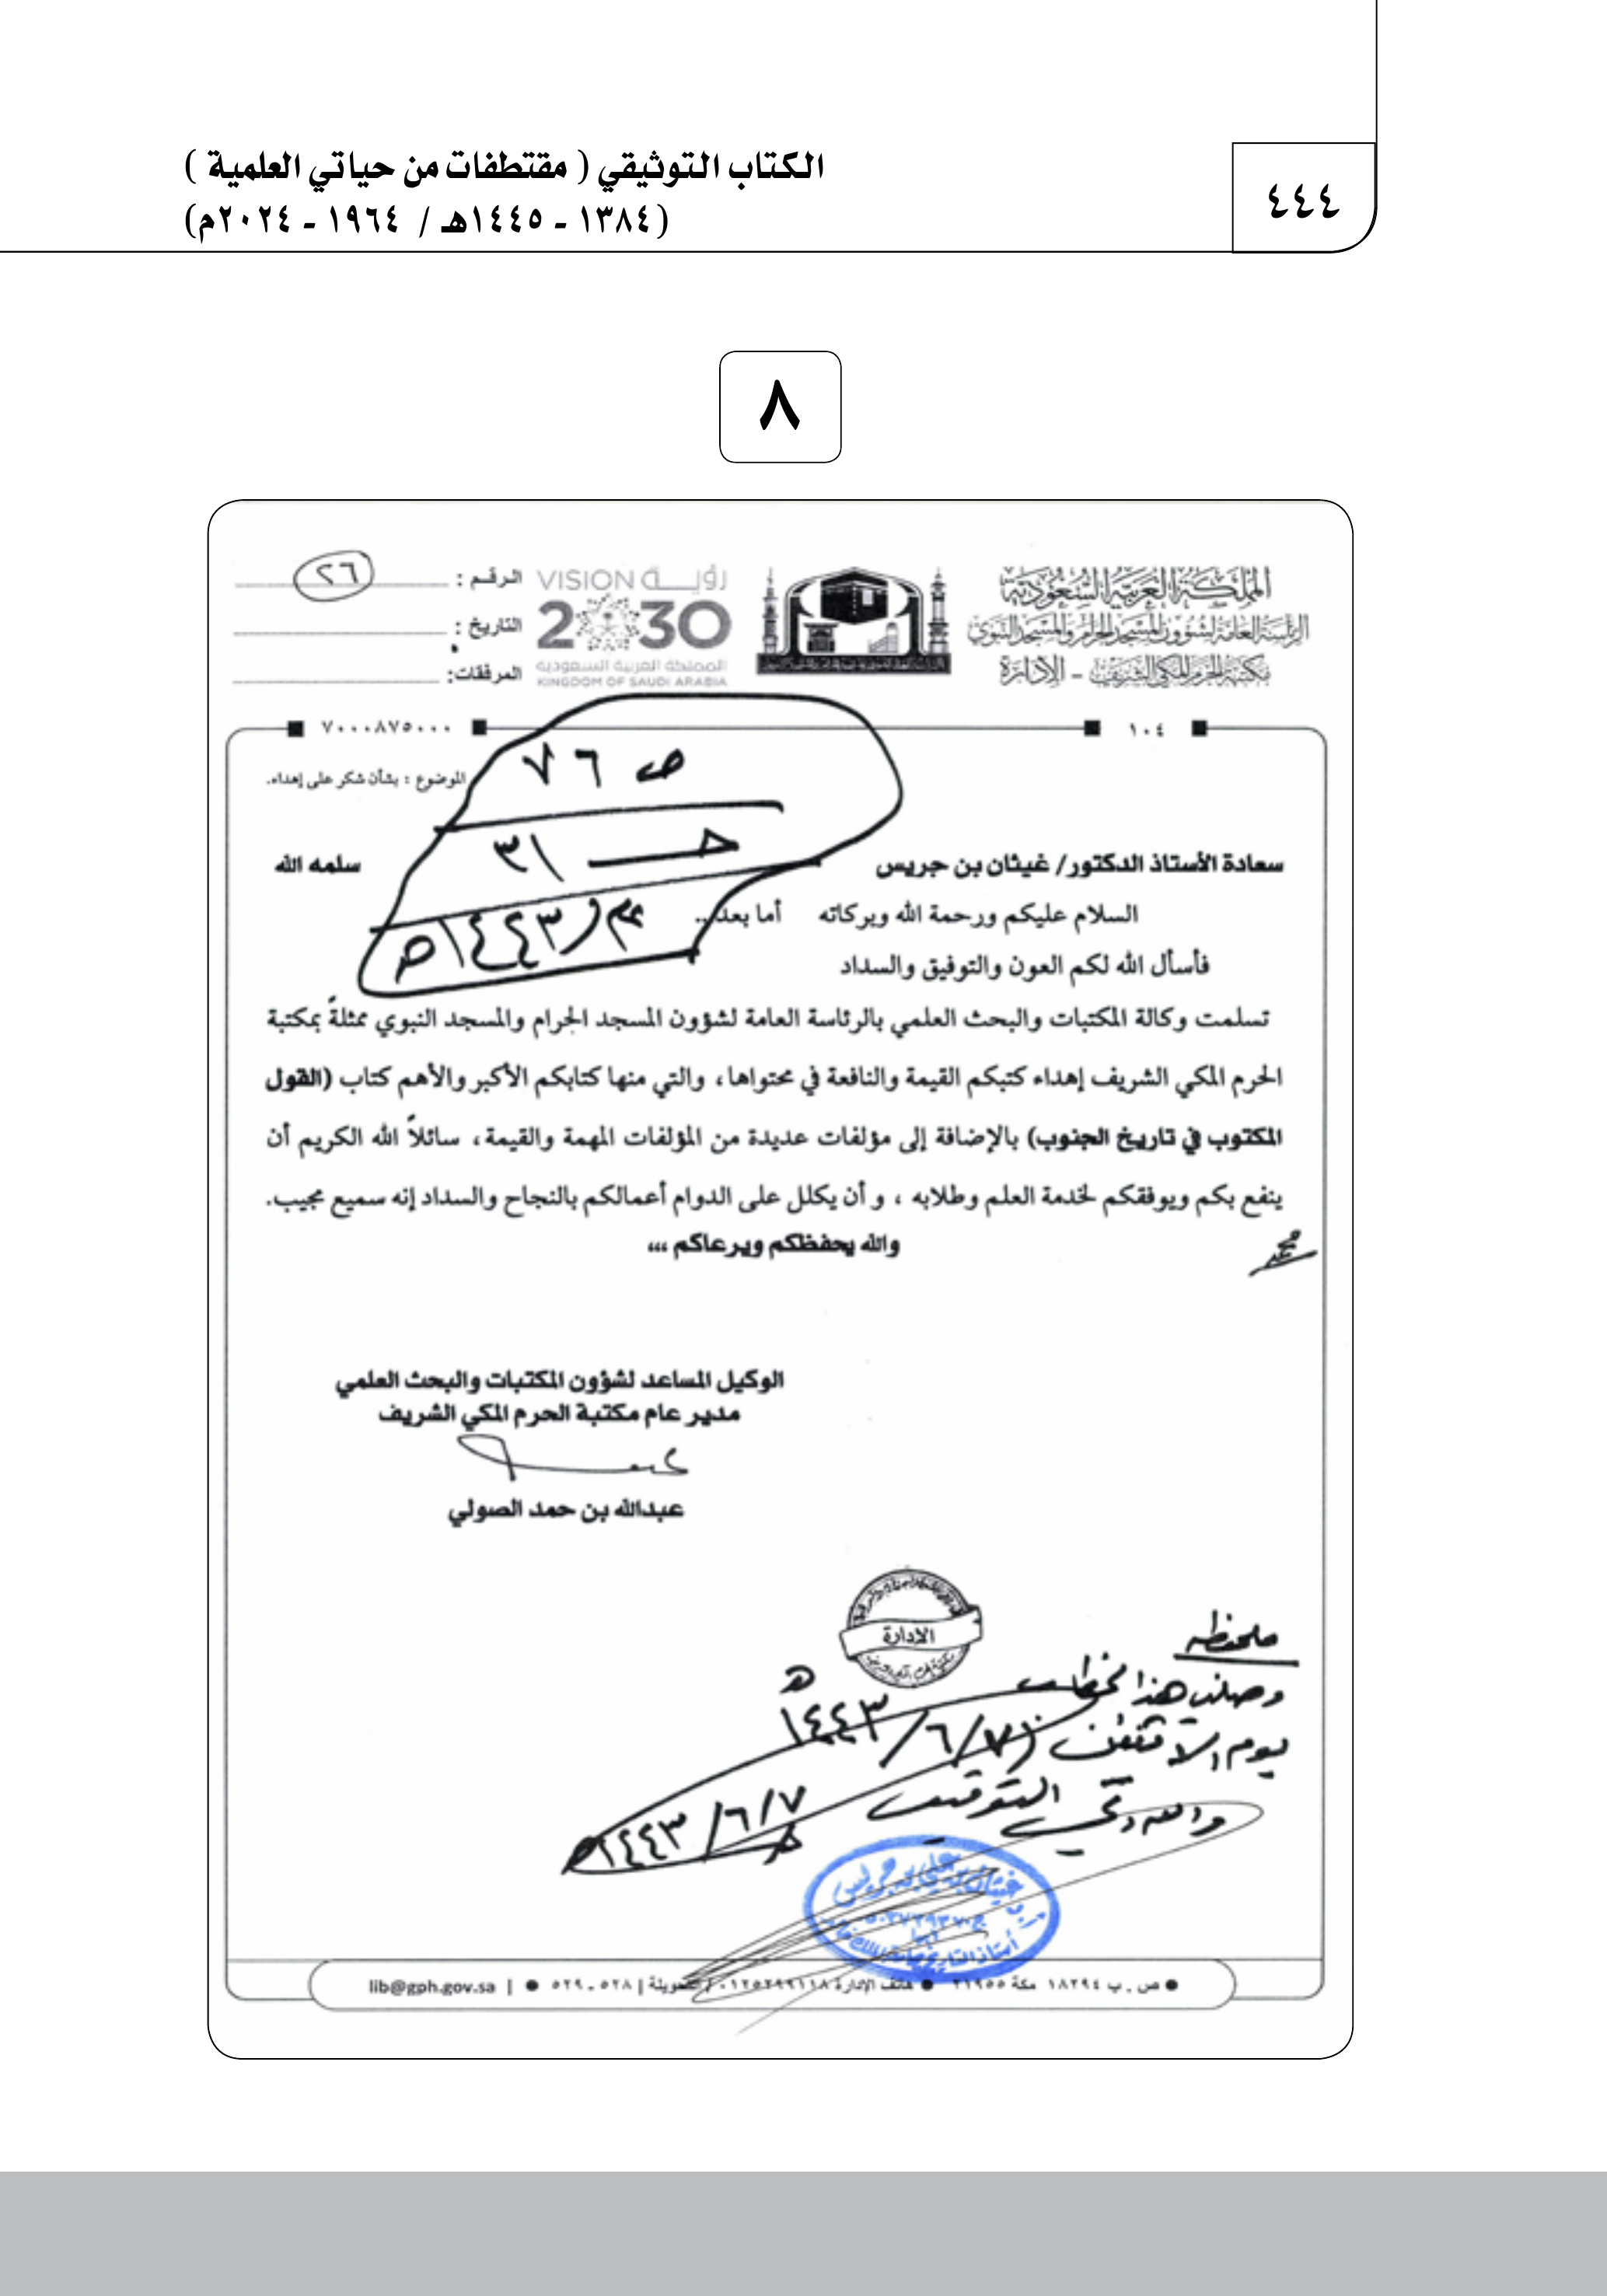 ٤٤٤
الكتاب التوثيقي ( مقتطفات من حياتي العلمية )
(١٣٨٤ - ١٤٤٥هـ / ١٩٦٤ - ٢٠٢٤م)
٨
المملكة العربية السعودية
الرئاسة العامة لشؤون المسجد الحرام والمسجد النبوي
مكتبة الحرم المكي الشريف - الإدارة
رؤيــة VISION
2030
المملكة العربية السعودية
KINGDOM OF SAUDI ARABIA
الرقم : ٢٦
التاريخ :
المرفقات:
١٠٤
٧٠٠٠٨٧٥٠٠٠
الموضوع : بشأن شكر على إهداء.
ص ٧٦
ج ٣١
١٤٤٣هـ
سعادة الأستاذ الدكتور/ غيثان بن جريس سلمه الله
السلام عليكم ورحمة الله وبركاته أما بعد..
فأسأل الله لكم العون والتوفيق والسداد
تسلمت وكالة المكتبات والبحث العلمي بالرئاسة العامة لشؤون المسجد الحرام والمسجد النبوي ممثلةً بمكتبة
الحرم المكي الشريف إهداء كتبكم القيمة والنافعة في محتواها، والتي منها كتابكم الأكبر والأهم كتاب (القول
المكتوب في تاريخ الجنوب) بالإضافة إلى مؤلفات عديدة من المؤلفات المهمة والقيمة، سائلاً الله الكريم أن
ينفع بكم ويوفقكم لخدمة العلم وطلابه ، و أن يكلل على الدوام أعمالكم بالنجاح والسداد إنه سميع مجيب.
والله يحفظكم ويرعاكم ،،،
الوكيل المساعد لشؤون المكتبات والبحث العلمي
مدير عام مكتبة الحرم المكي الشريف
عبدالله بن حمد الصولي
الإدارة
ملحوظه
وصلني هذا الخطاب
يوم الاثنين (٧/٦/١٤٤٣هـ
والله ولي التوفيق
٧/٦/١٤٤٣هـ
غيثان بن علي بن جريس
أبها
ص . ب ١٨٢٩٤ مكة ٢١٩٥٥ ● هاتف الإدارة ٠١٢٥٢٩٩١١٨ / تحويلة | ٥٢٨ - ٥٢٩ ● | lib@gph.gov.sa